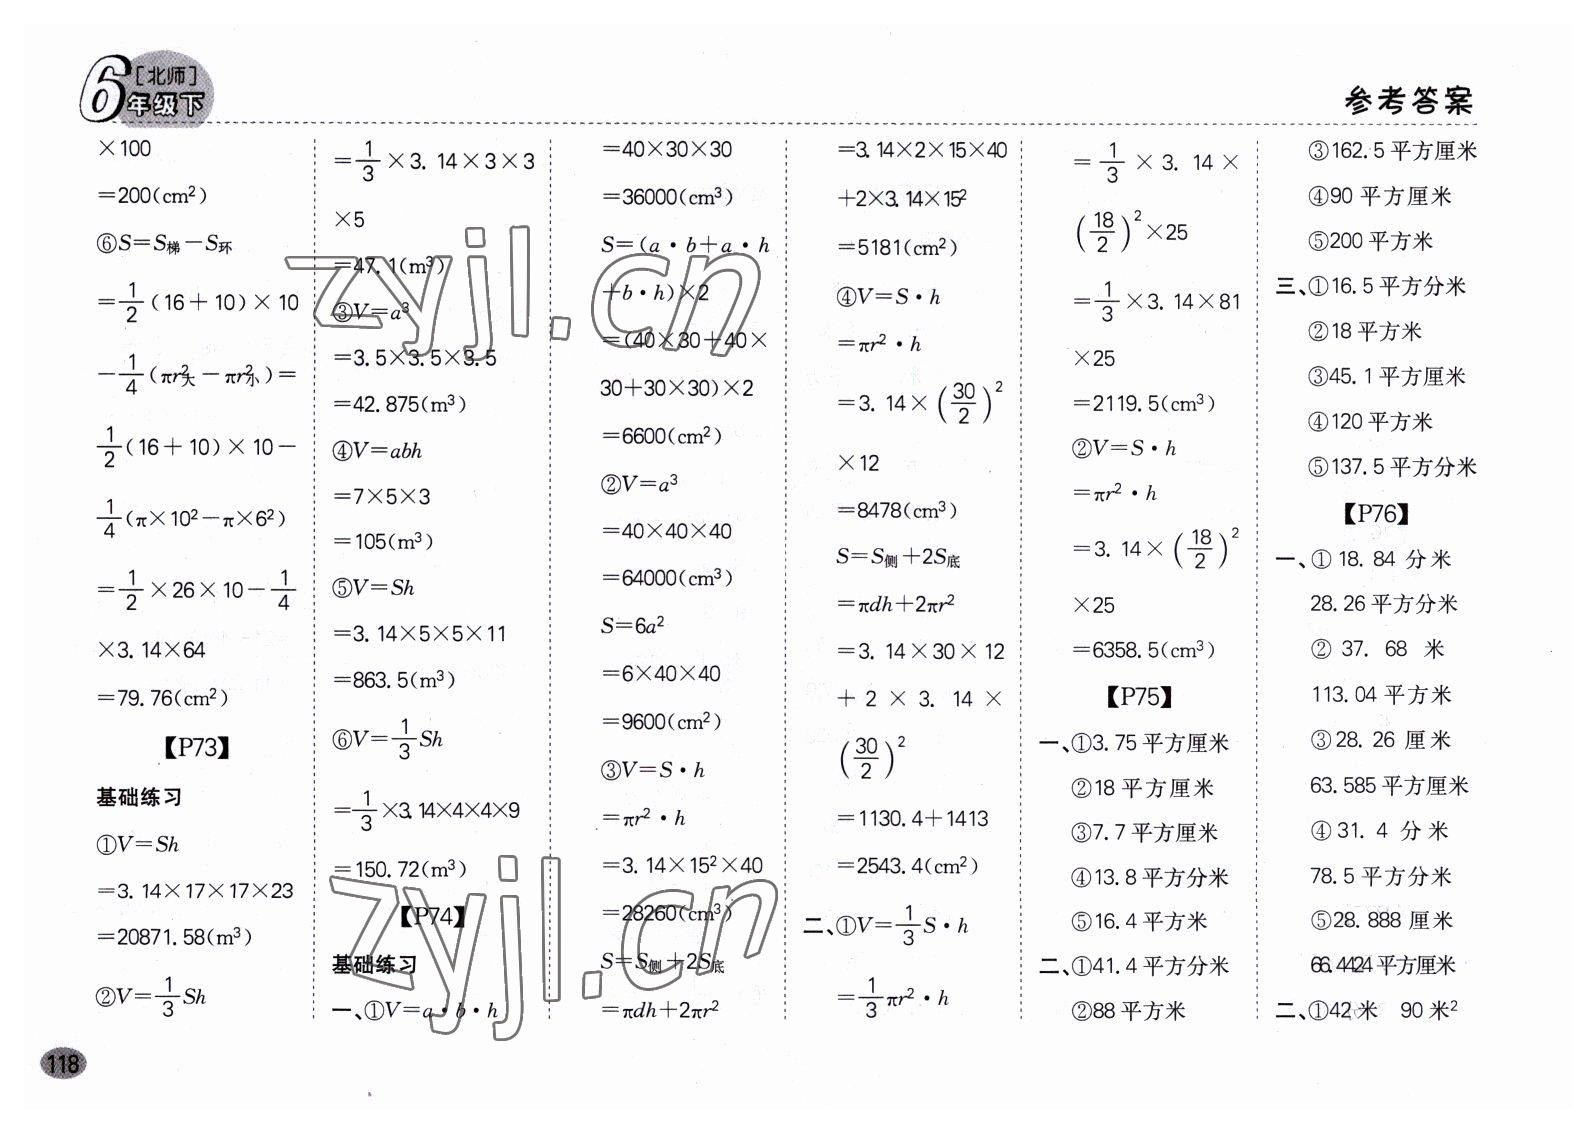 6
[北师]
年级下
参考答案
×100
=200(cm²)
⑥S=S梯-S环
=1/2(16+10)×10
-1/4(πr²大-πr²小)=
1/2(16+10)×10-
1/4(π×10²-π×6²)
=1/2×26×10-1/4
×3.14×64
=79.76(cm²)
【P73】
基础练习
①V=Sh
=3.14×17×17×23
=20871.58(m³)
②V=1/3Sh
=1/3×3.14×3×3
×5
=47.1(m³)
③V=a³
=3.5×3.5×3.5
=42.875(m³)
④V=abh
=7×5×3
=105(m³)
⑤V=Sh
=3.14×5×5×11
=863.5(m³)
⑥V=1/3Sh
=1/3×3.14×4×4×9
=150.72(m³)
【P74】
基础练习
一、①V=a·b·h
=40×30×30
=36000(cm³)
S=(a·b+a·h
+b·h)×2
=(40×30+40×
30+30×30)×2
=6600(cm²)
②V=a³
=40×40×40
=64000(cm³)
S=6a²
=6×40×40
=9600(cm²)
③V=S·h
=πr²·h
=3.14×15²×40
=28260(cm³)
S=S侧+2S底
=πdh+2πr²
=3.14×2×15×40
+2×3.14×15²
=5181(cm²)
④V=S·h
=πr²·h
=3.14×(30/2)²
×12
=8478(cm³)
S=S侧+2S底
=πdh+2πr²
=3.14×30×12
+2×3.14×
(30/2)²
=1130.4+1413
=2543.4(cm²)
二、①V=1/3S·h
=1/3πr²·h
=1/3×3.14×
(18/2)²×25
=1/3×3.14×81
×25
=2119.5(cm³)
②V=S·h
=πr²·h
=3.14×(18/2)²
×25
=6358.5(cm³)
【P75】
一、①3.75平方厘米
②18平方厘米
③7.7平方厘米
④13.8平方分米
⑤16.4平方米
二、①41.4平方分米
②88平方米
③162.5平方厘米
④90平方厘米
⑤200平方米
三、①16.5平方分米
②18平方米
③45.1平方厘米
④120平方米
⑤137.5平方分米
【P76】
一、①18.84分米
28.26平方分米
②37.68米
113.04平方米
③28.26厘米
63.585平方厘米
④31.4分米
78.5平方分米
⑤28.888厘米
66.4424平方厘米
二、①42米 90米²
118
zyjl.cn
zyjl.cn